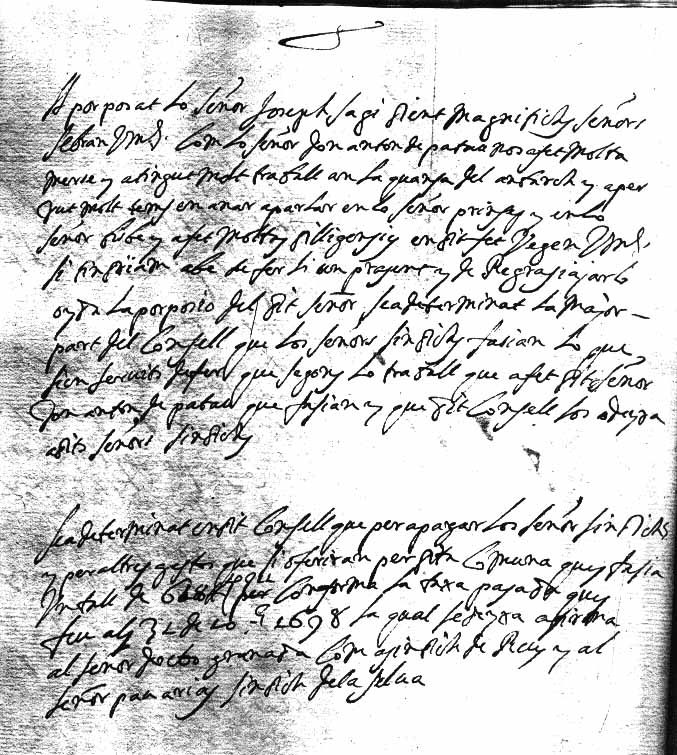 A porposat lo señor Joseph Sagi dient magnifichs señors
sebran Vms. com lo señor Don anton de patau nos a fet molta
merce y a tingut molt traball an la quansa del y a per
gut molt tems en anar a parlar en lo señor prinsep y en lo
señor bisbe y a fet moltes diligensies en dit fet Vagen Vms.
si tindriam a be de ferli un prasent y de Regrasiajarlo
oyda la porposio del dit señor sea determinat la major
part del Consell que los señors sindichs fasian lo que
sien servits de fer que segons lo traball que a fet dit señor
Don anton de patau que fasian y que dit Consell los
a dits señors sindichs
sea determinat en dit Consell que per a pagar los señors sindichs
y per altres gastos que si oferiran per dita Comuna ques fasia
Un tall de per Conforma la taxa pasada ques
feu als 31 de 10.e 1678 la qual se
al señor doctor granada Com a sindich de Reus y al
señor pau arias sindich de la selva